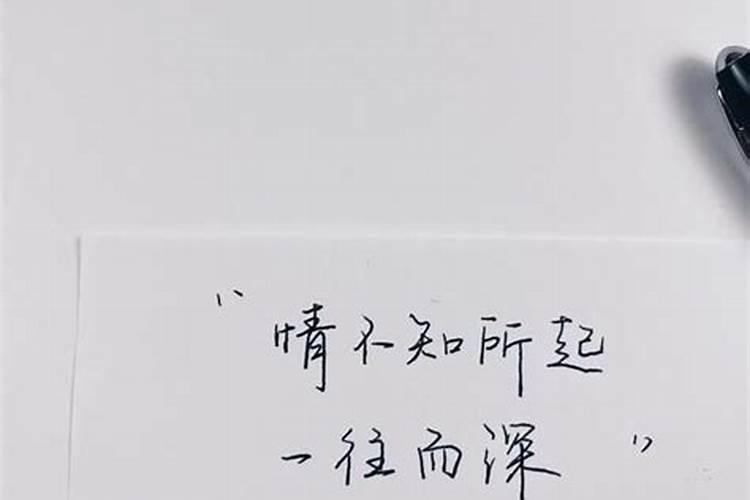 “情不知所起
一往而深”